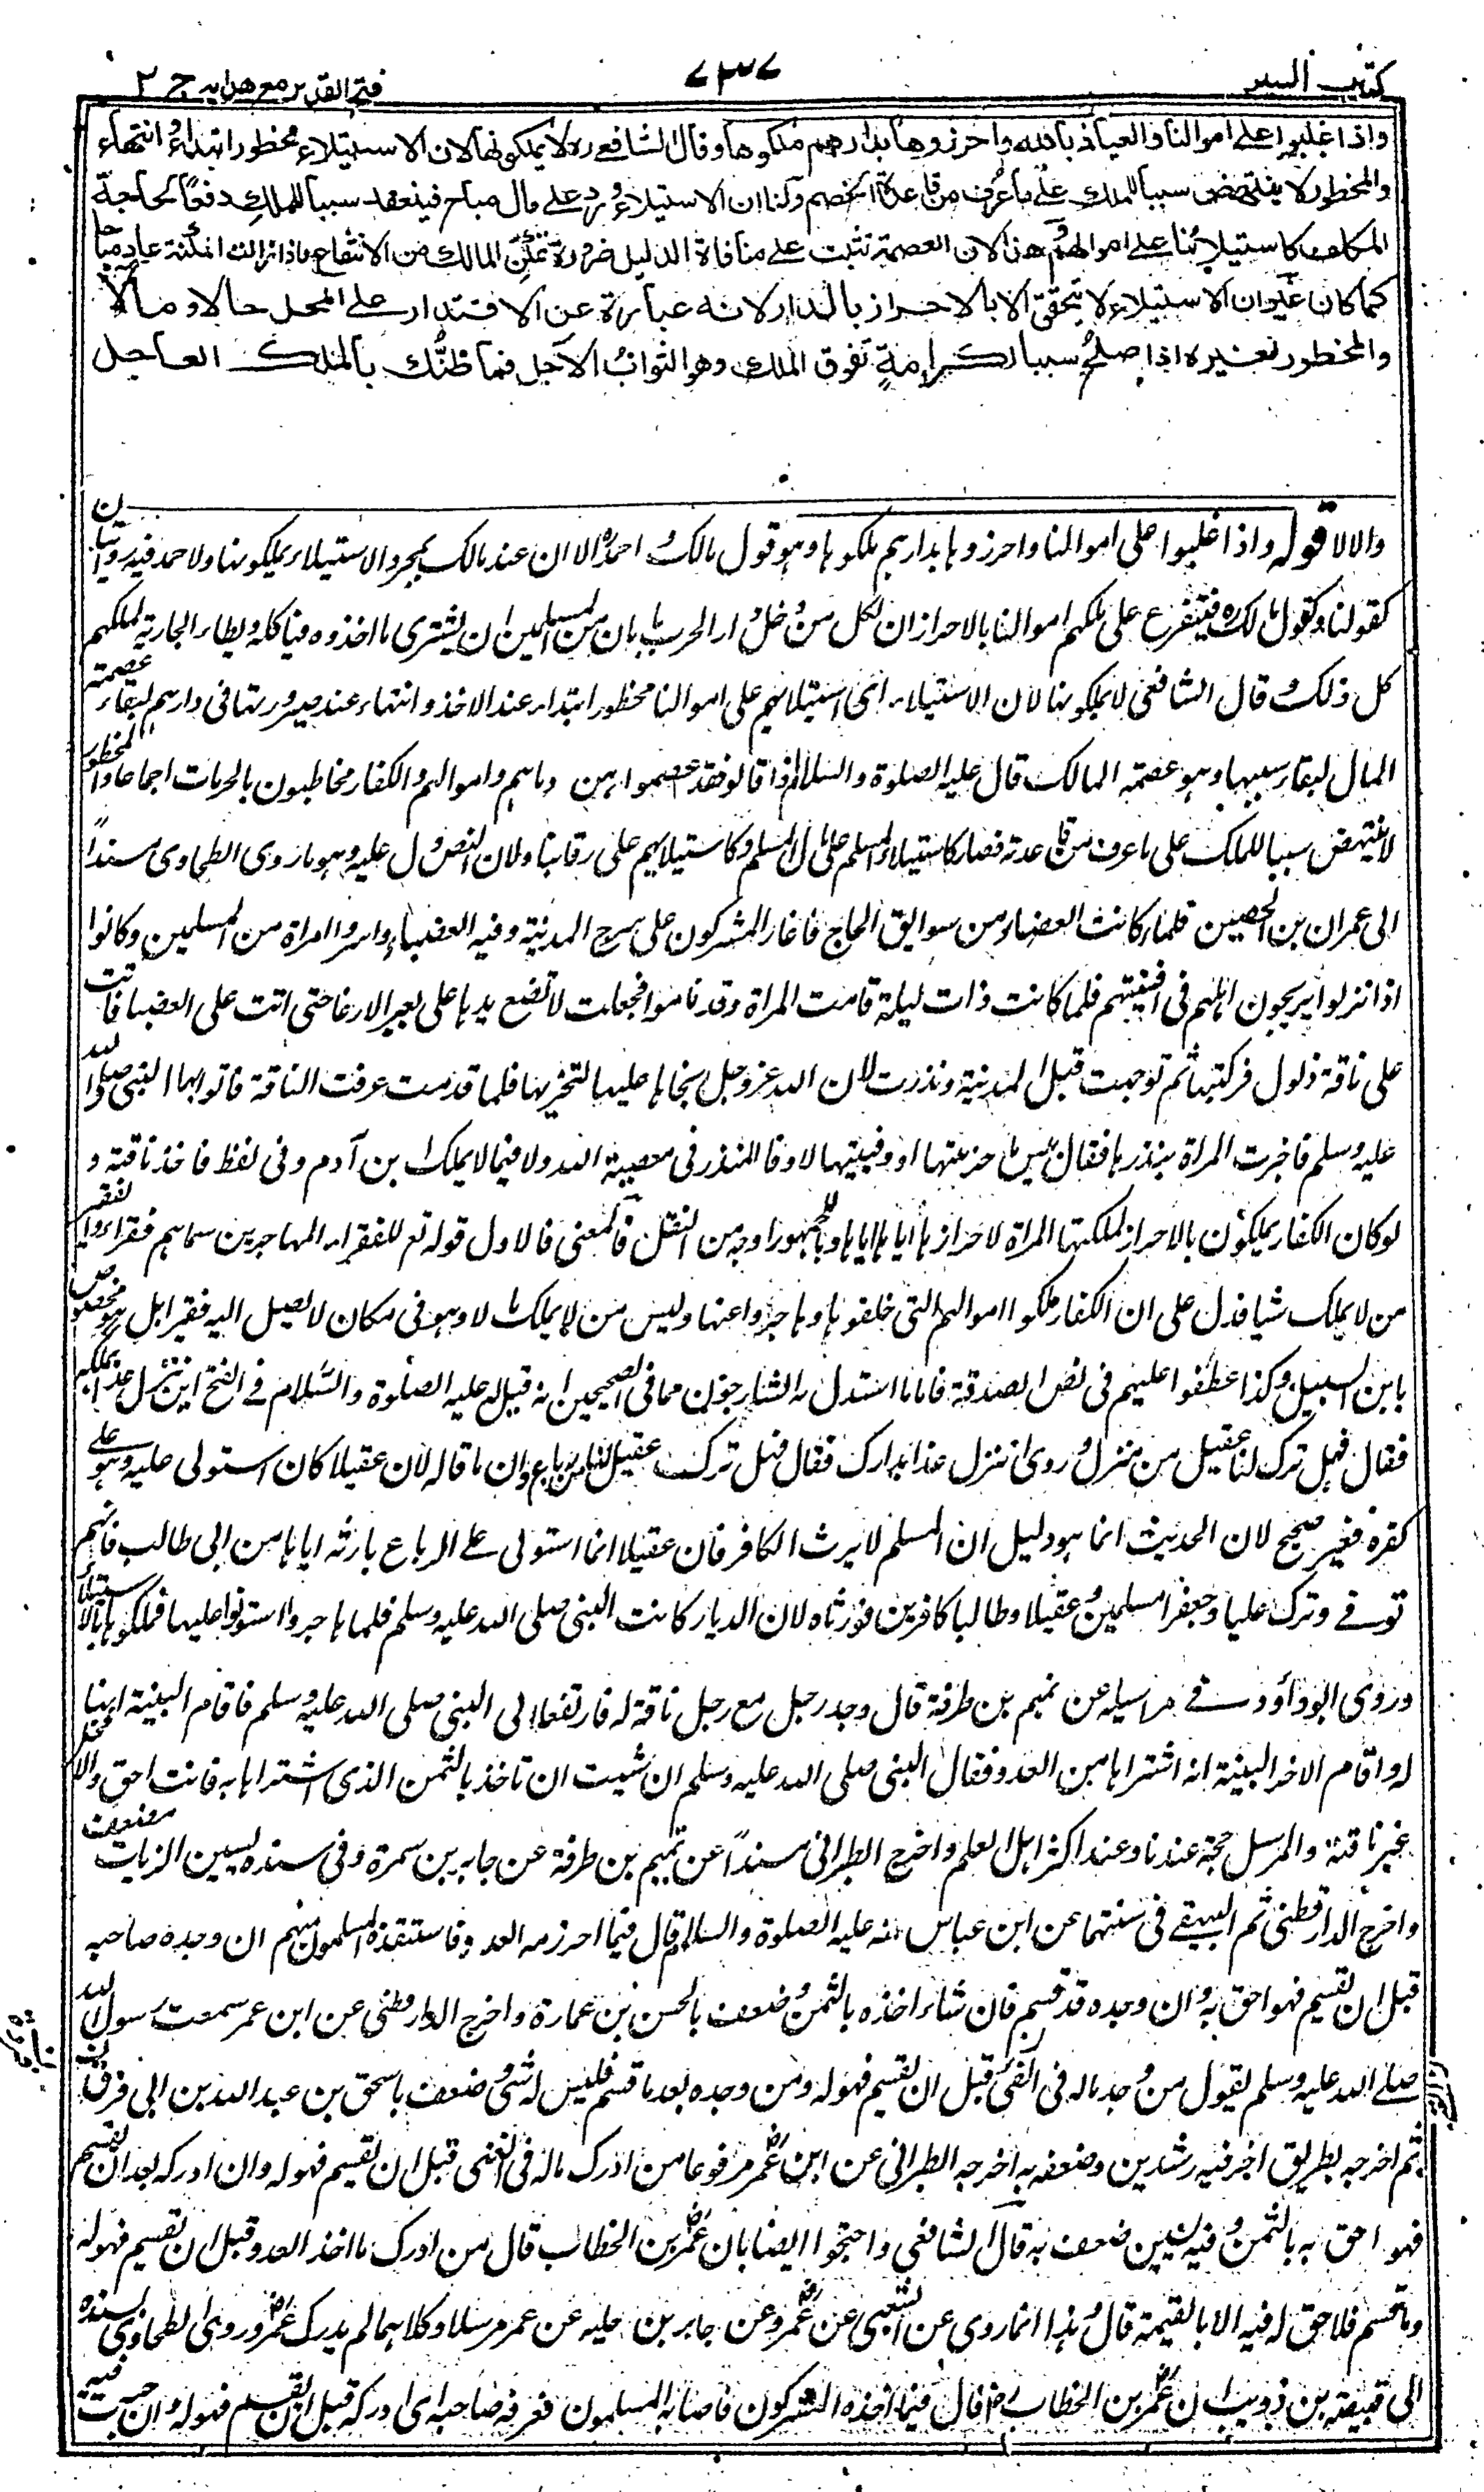 كتاب السير
٧٣٧
فتح القدير مع هدايه ج ٢
واذا غلبوا على اموالنا والعياذ بالله واحرزوها بدارهم ملكوها وقال الشافعي ره لا يملكونها لان الاستيلاء محظور ابتداءً وانتهاء
والمحظور لا ينتهض سببا للملك على ما عرف من قاعدة الخصم ولنا ان الاستيلاء ورد على مال مباح فينعقد سببا للملك دفعًا لحاجة
المكلف كاستيلائنا على اموالهم وهذا لان العصمة تثبت على منافاة الدليل ضرورة تمكن المالك من الانتفاع فاذا زالت المكنة عاد مباحا
كما كان غير ان الاستيلاء لا يتحقق الا بالاحراز بالدار لانه عبارة عن الاقتدار على المحل حالا ومآلا
والمحظور لغيره اذا صلح سببا لكرامةٍ تفوق الملك وهو الثواب الآجل فما ظنّك بالملك العاجل
والالا قوله واذا غلبوا على اموالنا واحرزوها بدارهم ملكوها وهو قول مالك واحمد الا ان عند مالك بمجرد الاستيلاء يملكونها ولاحمد فيه روايتان
كقولنا وكقول مالك ره فيتفرع على ملكهم اموالنا بالاحراز ان لكل من دخل دار الحرب بامان من المسلمين ان يشترى ما اخذوه فياكله ويطاء الجارية لملكهم
كل ذلك وقال الشافعى لا يملكونها لان الاستيلاء اى استيلائهم على اموالنا محظور ابتداء عند الاخذ وانتهاء عند صيرورتها فى دارهم لبقاء عصمة
المال لبقاء سببها وهو عصمة المالك قال عليه الصلوة والسلام فاذا قالوها فقد عصموا منى دماءهم واموالهم والكفار مخاطبون بالحرمات اجماعا والمحظور
لا ينتهض سببا للملك على ما عرف من قاعدته فصار كاستيلاء المسلم على مال المسلم وكاستيلائهم على رقابنا ولان النص دل عليه وهو ما روى الطحاوى مسندًا
الى عمران بن الحصين قال كانت العضباء من سوابق الحاج فاغار المشركون على سرح المدينة وفيه العضباء واسروا امراة من المسلمين وكانوا
اذا نزلوا يريحون ابلهم فى افنيتهم فلما كانت ذات ليلة قامت المراة وقد ناموا فجعلت لا تضع يدها على بعير الا رغا حتى اتت على العضباء فاتت
على ناقة ذلول فركبتها ثم توجهت قبل المدينة ونذرت لان الله عز وجل نجاها عليها لتنحرنها فلما قدمت عرفت الناقة فاتوا بها النبى صلى الله
عليه وسلم فاخبرت المراة بنذرها فقال بئس ما جزيتها او وفيتيها لا وفاء لنذر فى معصية الله ولا فيما لا يملك ابن آدم وفى لفظ فاخذ ناقته و
لو كان الكفار يملكون بالاحراز لملكتها المراة لاحرازها اياها وللجمهور اوجه من النقل والمعنى فالاول قوله تع للفقراء المهاجرين سماهم فقراء والفقير
من لا يملك شيا فدل على ان الكفار ملكوا اموالهم التى خلفوها وهاجروا عنها وليس من لا يملك مالا وهو فى مكان لا يصل اليه فقيرا بل هو مخصوص
بابن السبيل وكذا عطفوا عليهم فى نص الصدقة فاما ما استدل به الشارحون مما فى الصحيحين انه قيل له عليه الصلوة والسلام فى الفتح اين تنزل غدا بمكة
فقال فهل ترك لنا عقيل من منزل وروى اتنزل غدا بدارك فقال هل ترك لنا عقيل من رباع وان ما قاله لان عقيلا كان استولى عليه وهو على
كفره فغير صحيح لان الحديث انما هو دليل ان المسلم لا يرث الكافر فان عقيلا انما استولى على الرباع بارثه اياها من ابى طالب فانهم
توفى وترك عليا وجعفرا مسلمين وعقيلا وطالبا كافرين فورثاه لان الديار كانت للنبى صلى الله عليه وسلم فلما هاجر استولوا عليها فملكوها بالاستيلاء
وروى ابو داؤد فى مراسيله عن تميم بن طرفة قال وجد رجل مع رجل ناقة له فارتفعا الى النبى صلى الله عليه وسلم فاقام البينة انها
له واقام الاخر البينة انه اشتراها من العدو فقال النبى صلى الله عليه وسلم ان شئت ان تاخذ بالثمن الذى اشتراها به فانت احق والا فخل
عن ناقته والمرسل حجة عندنا وعند اكثر اهل العلم واخرج الطبرانى مسندًا عن تميم بن طرفة عن جابر بن سمرة وفى سنده يسين الزيات مضعف
واخرج الدارقطنى ثم البيهقى فى سننهما عن ابن عباس عنه عليه الصلوة والسلام قال فيما احرزه العدو فاستنقذه المسلمون منهم ان وجده صاحبه
قبل ان يقسم فهو احق به وان وجده قد قسم فان شاء اخذه بالثمن وضعف بالحسن بن عمارة واخرج الدارقطنى عن ابن عمر سمعت رسول الله
صلى الله عليه وسلم يقول من وجد ماله فى الفئ قبل ان يقسم فهو له ومن وجده بعد ما قسم فليس له شئ وضعف باسحق بن عبد الله بن ابى فروة
ثم اخرجه بطريق اخر فيه رشدين وضعفه به واخرجه الطبرانى عن ابن عمر مرفوعا من ادرك ماله فى الفئ قبل ان يقسم فهو له وان ادركه بعد ان يقسم
فهو احق به بالثمن وفيه يسين ضعف به قال الشافعى واحتجوا ايضا بان عمر بن الخطاب قال من ادرك ما اخذ العدو قبل ان يقسم فهو له
وما قسم فلا حق له فيه الا بالقيمة قال وهذا انما روى عن الشعبى عن عمر وعن رجاء بن حيوة عن عمر مرسلا وكلاهما لم يدرك عمر وروى الطحاوى بسنده
الى قبيصة بن ذويب ان عمر بن الخطاب رض قال فيما اخذه المشركون فاصابه المسلمون فعرفه صاحبه اى ادركه قبل ان يقسم فهو له وان جرت فيه